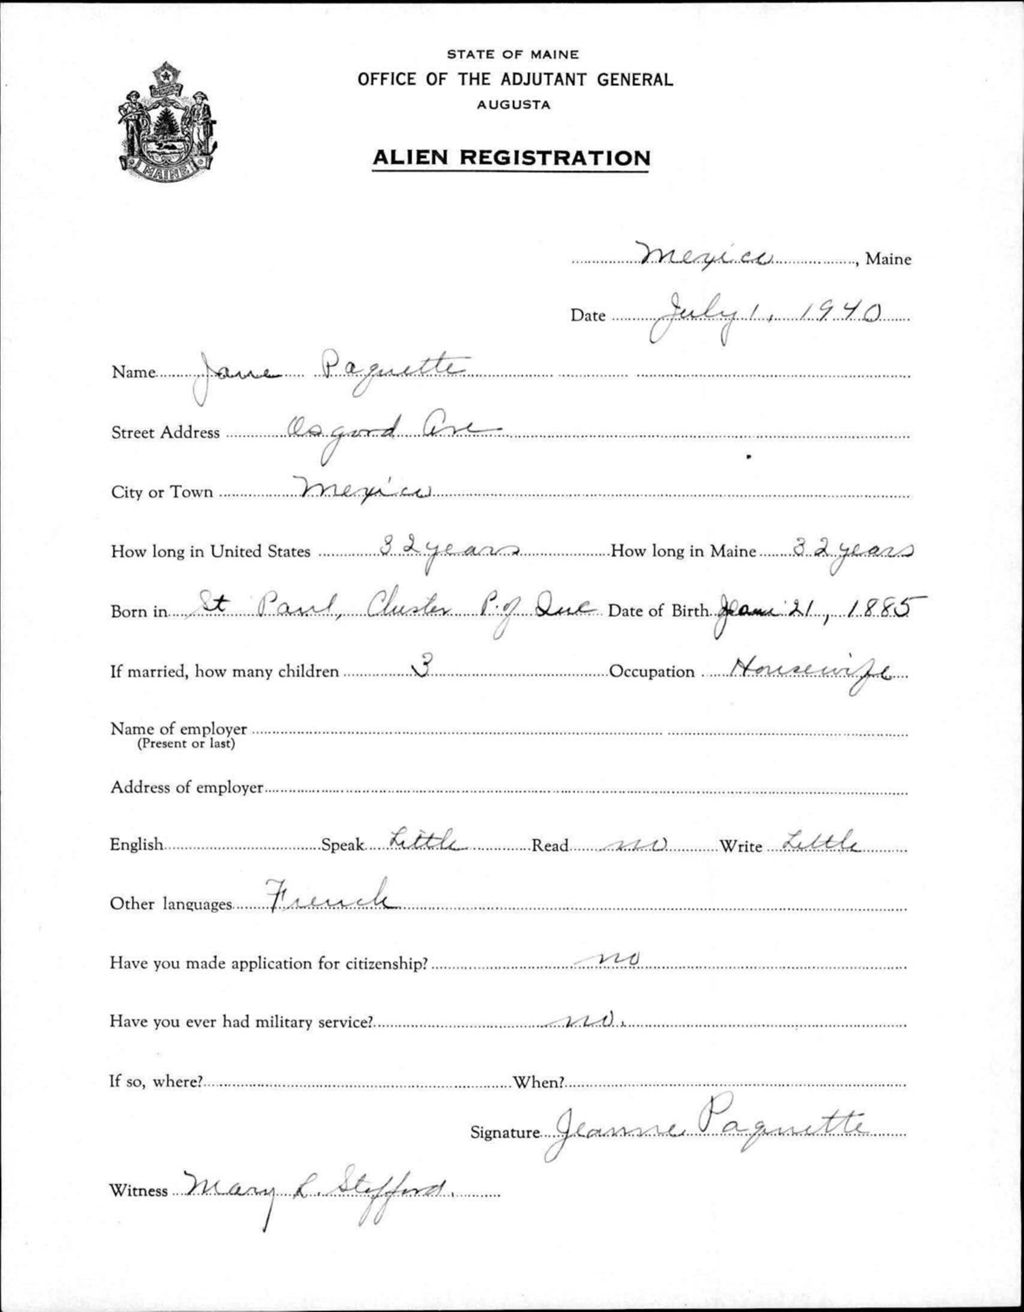 STATE OF MAINE
OFFICE OF THE ADJUTANT GENERAL
AUGUSTA
ALIEN REGISTRATION
MAINE
Mexico, Maine
Date July 1, 1940
Name Jane Paquette
Street Address Osgood Ave
City or Town Mexico
How long in United States 32 years How long in Maine 32 years
Born in St Paul, Chester P. of Que Date of Birth Jan 21, 1885
If married, how many children 3 Occupation Housewife
Name of employer
(Present or last)
Address of employer
English Speak Little Read no Write Little
Other languages French
Have you made application for citizenship? no
Have you ever had military service? no.
If so, where? When?
Signature Jeanne Paquette
Witness Mary L. Stafford.